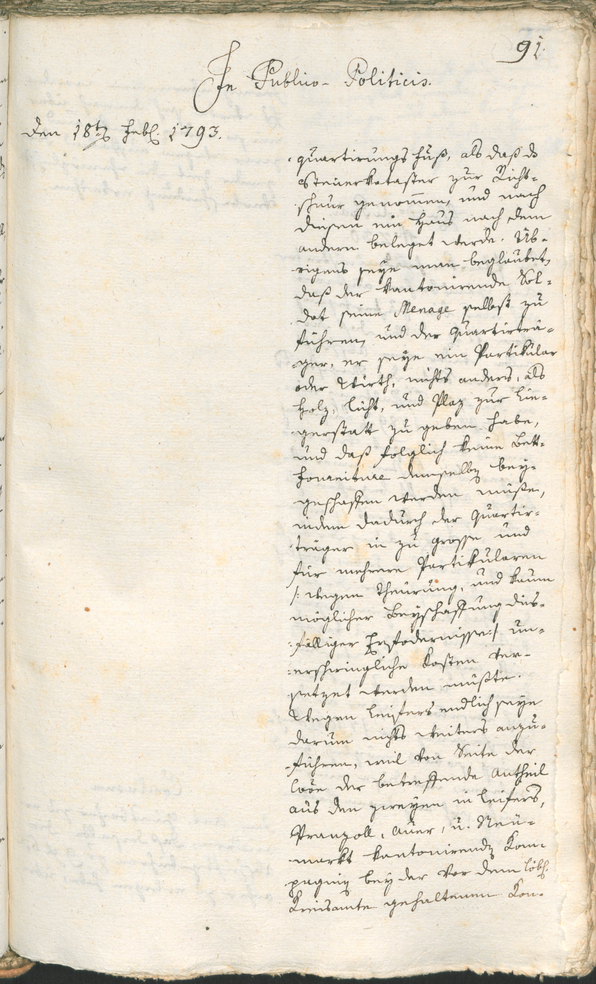 91.
In Publico-Politicis.
Den 18ten Febr. 1793.
quartirungs Fuß, als daß de
Steuerkataster zur Richt-
schnur genomen, und nach
diesen ein Haus nach dem
andern beleget werde. Üb-
rigens seye man beglaubet,
daß der kantonirende Sol-
dat seine Menage selbst zu
führen, und der Quartirträ-
ger, er seye ein Partikular
oder Wirth, nichts anders, als
Holz, Licht, und Plaz zur Lie-
gerstatt zu geben habe,
und daß folglich keine Bett-
Fournituren demselben bey-
geschaffen werden müße,
indem dadurch der Quartir-
träger in zu grosse und
für mehrere Partikularen
/: wegen Theurung, und kaum
möglicher Beyschaffung dies-
fälliger Erfodernisse :/ un-
erschwingliche Kosten ver-
setzet werden müßte.
Wegen Leifers endlich seye
darum nichts weiters anzu-
führen, weil von Seite der
löve der betreffende Antheil
aus den zweyen in Leifers,
Branzoll, Auer, u. Neu-
markt kantonirendn Kom-
pagnien bey der vor dem löbl.
Kreisamte gehaltenen Kon-